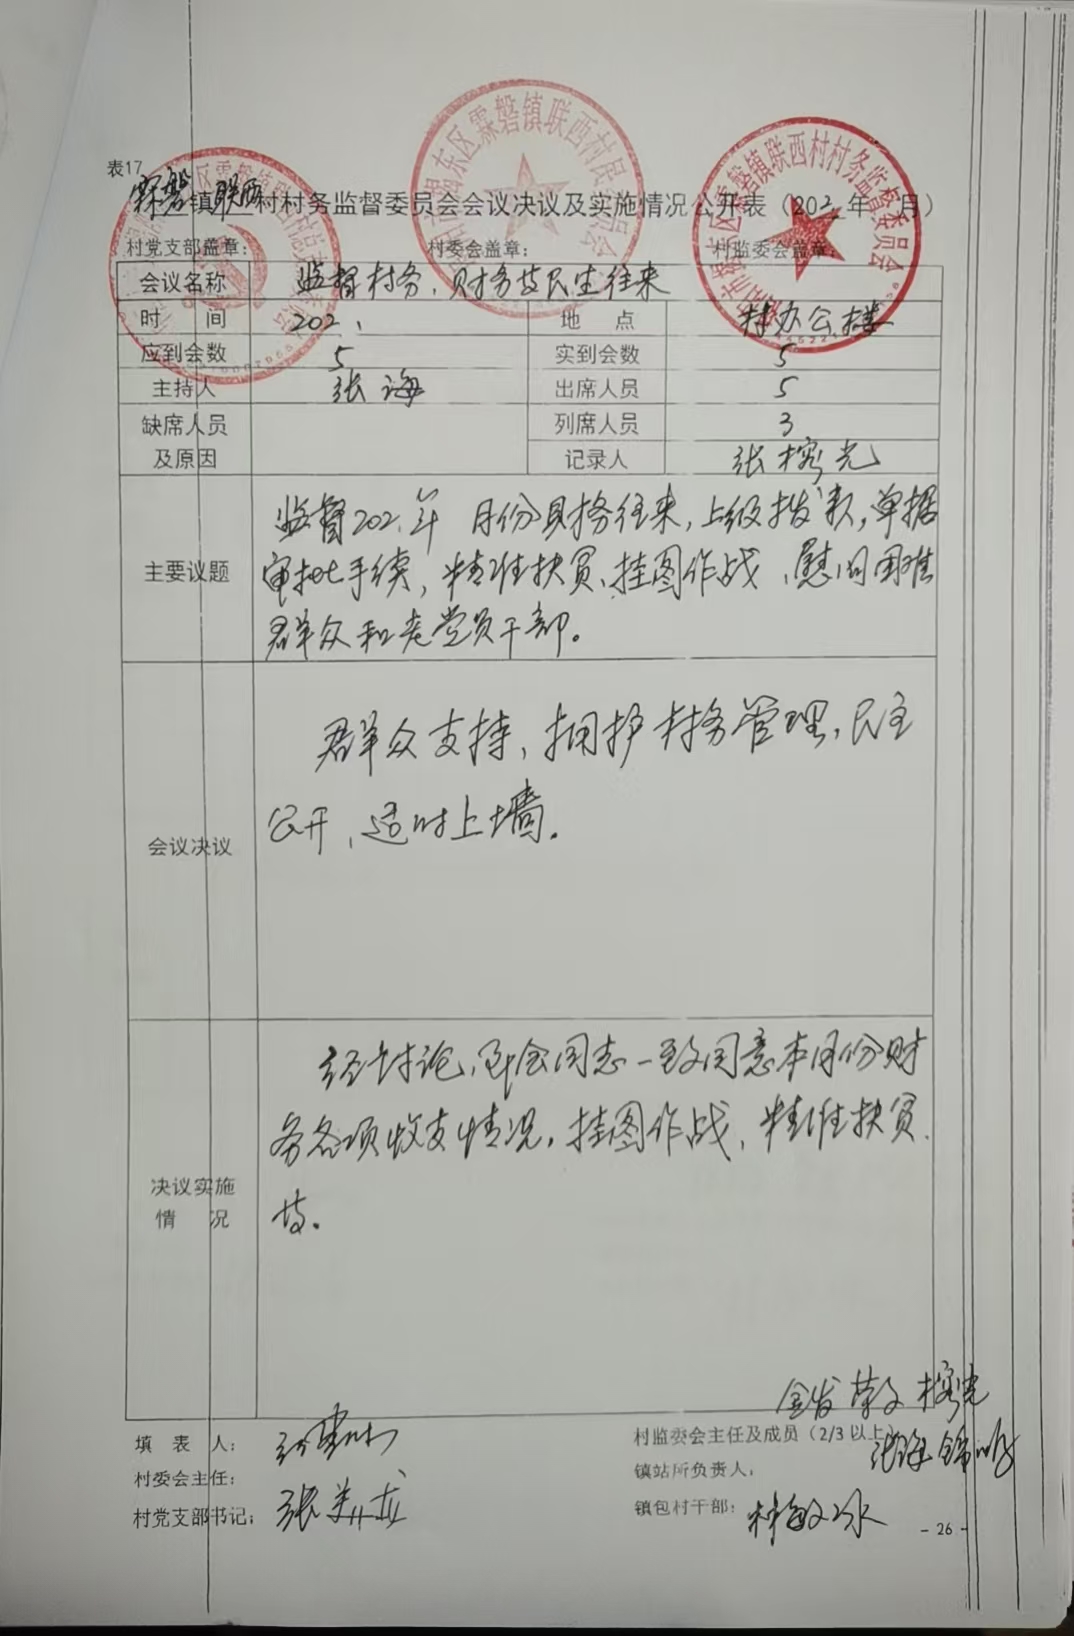 表17
霖磐镇联西村村务监督委员会会议决议及实施情况公开表（202 年 月）
村党支部盖章： 村委会盖章： 村监委会盖章：
霖磐镇联西村村务监督委员会
会议名称 监督村务、财务及民生往来
时 间 202 地 点 村办公楼
应到会数 5 实到会数 5
主持人 张海 出席人员 5
缺席人员 列席人员 3
及原因 记录人 张榕光
主要议题
监督202 年 月份财务往来，上级拨款，单据
审批手续，精准扶贫、挂图作战、慰问困难
群众和老党员干部。
会议决议
群众支持，拥护村务管理，民主
公开，适时上墙。
决议实施
情 况
经讨论，与会同志一致同意本月份财
务各项收支情况，挂图作战，精准扶贫
等。
金发 荣文 榕光
填 表 人： 村监委会主任及成员（2/3以上） 张海 锦明
村委会主任： 镇站所负责人：
村党支部书记： 张美龙 镇包村干部： 林敏冰
- 26 -